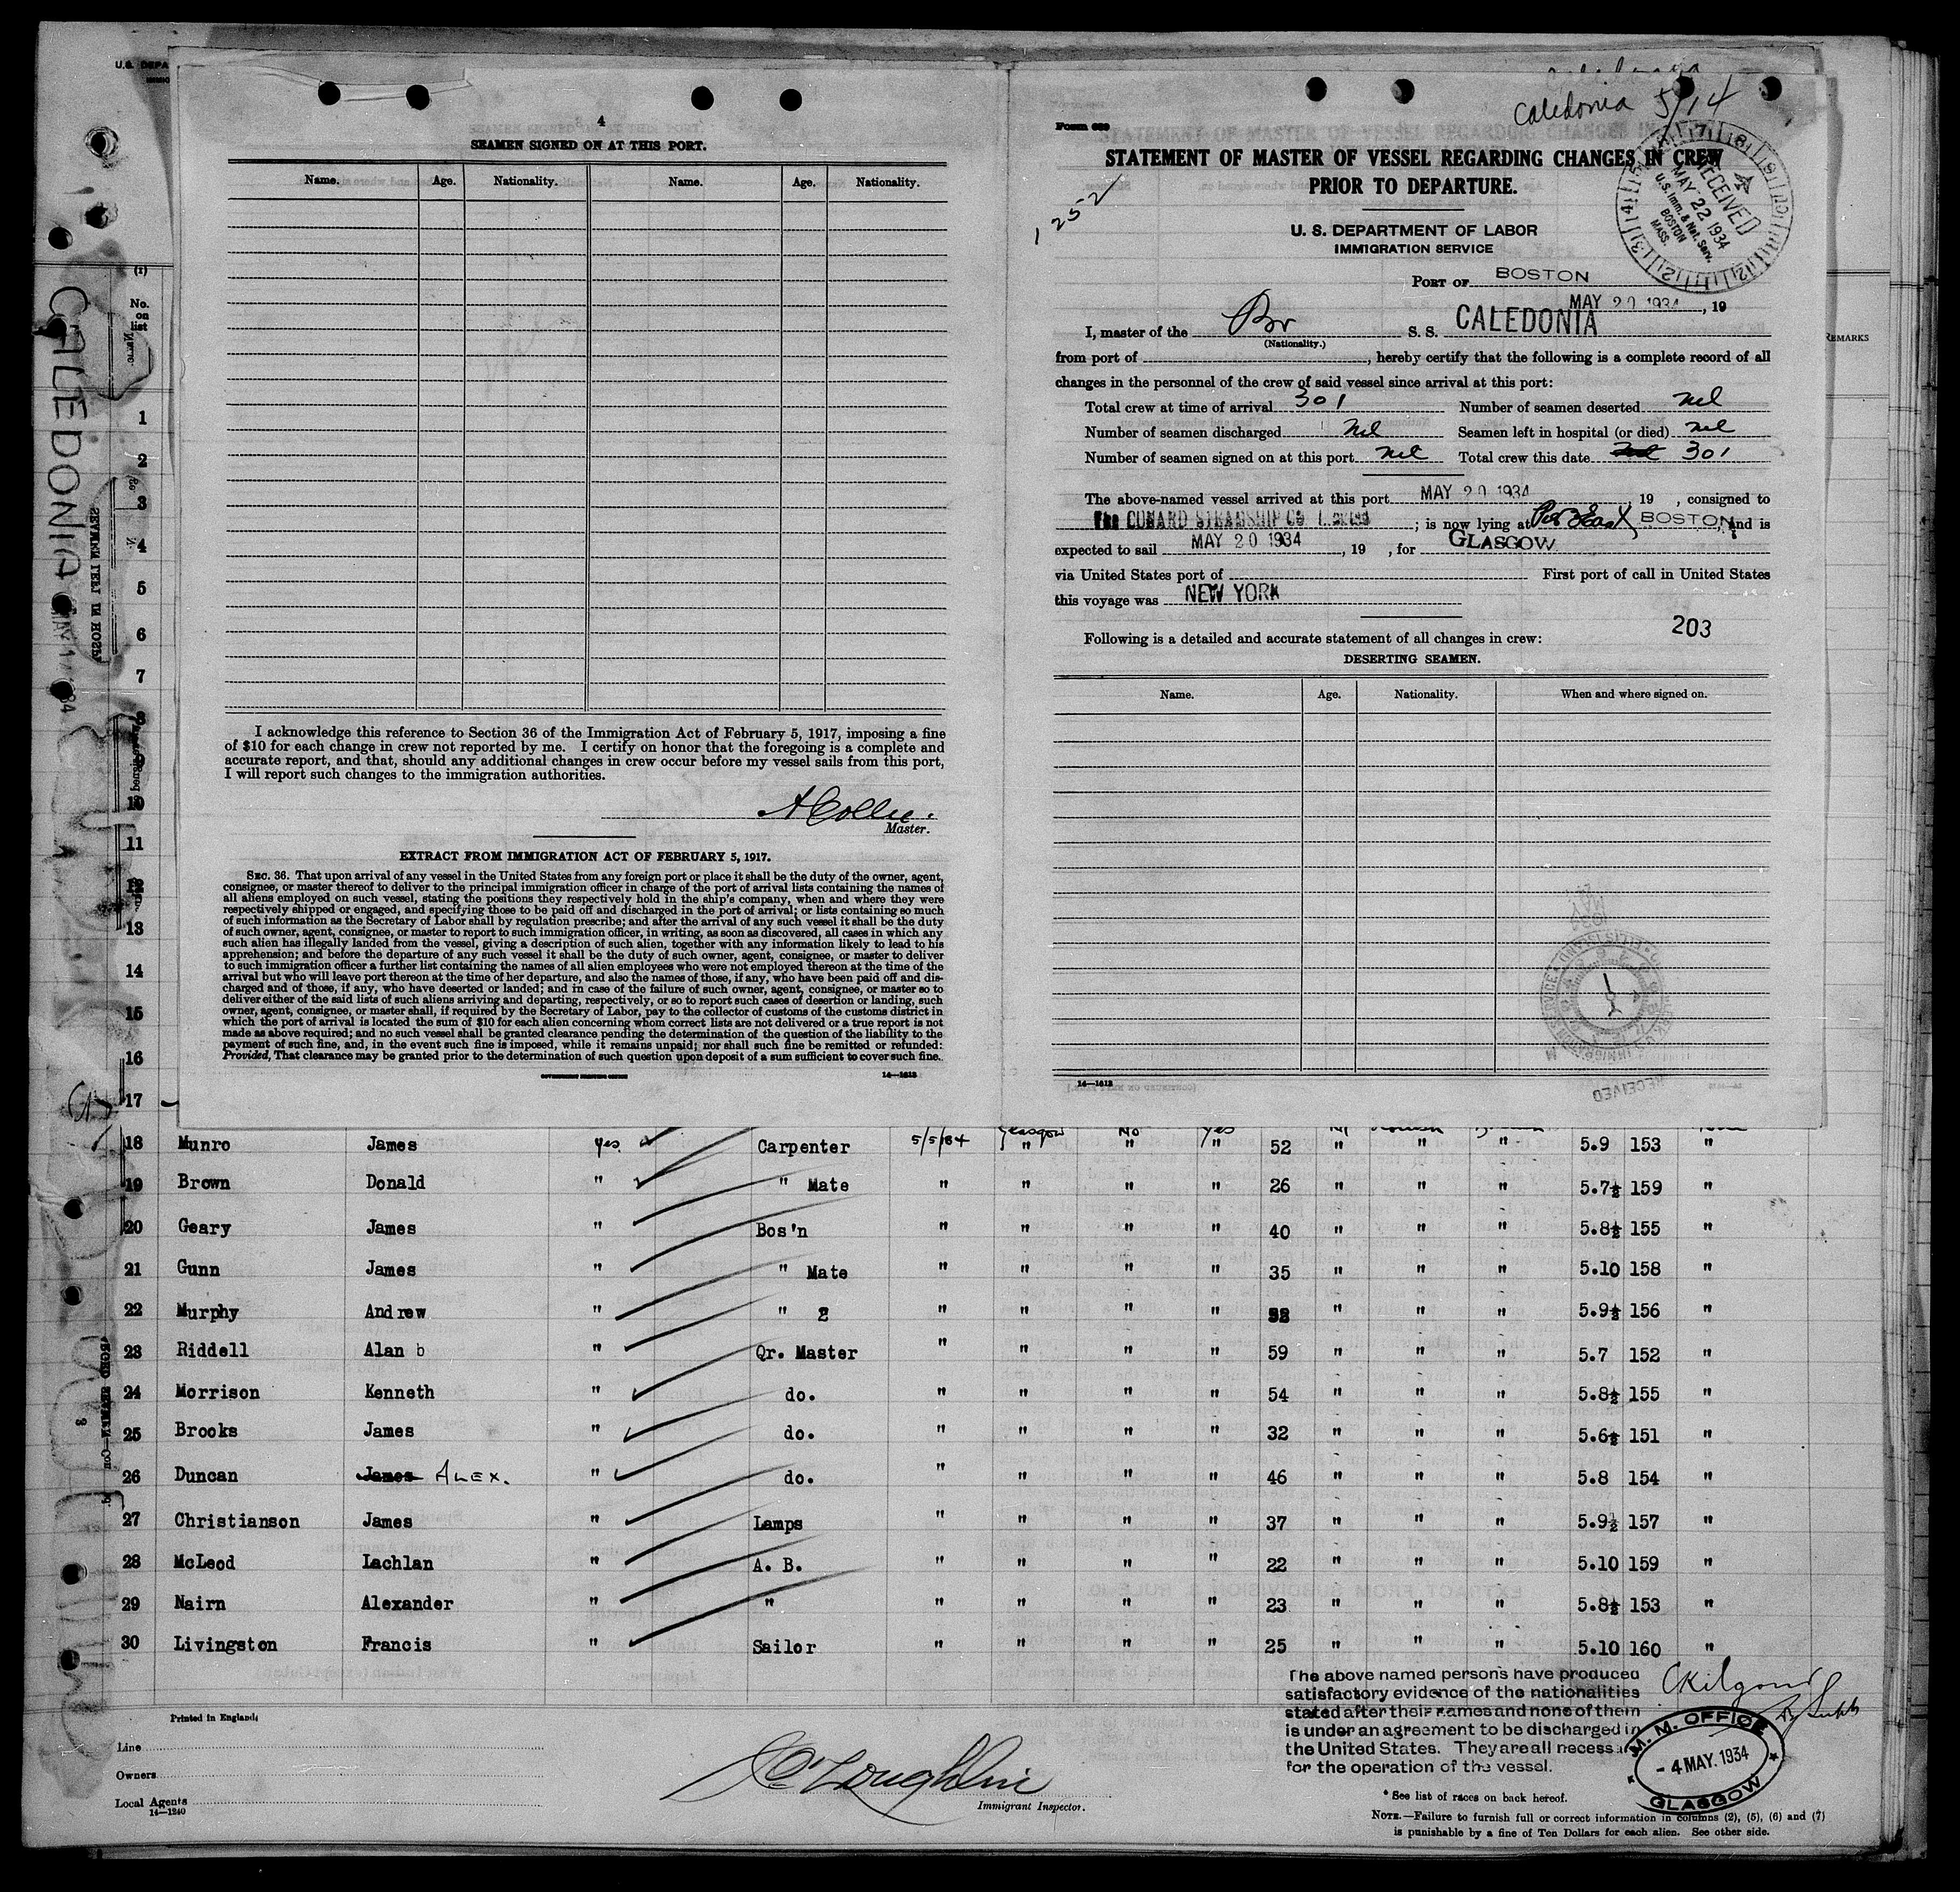 U.S. DEPA
CALEDONIA
(1)
No.
on
list
1
2
3
4
5
6
7
8
9
10
11
12
13
14
15
16
17
4
SEAMEN SIGNED ON AT THIS PORT.
Name. Age. Nationality. Name. Age. Nationality.
I acknowledge this reference to Section 36 of the Immigration Act of February 5, 1917, imposing a fine
of $10 for each change in crew not reported by me. I certify on honor that the foregoing is a complete and
accurate report, and that, should any additional changes in crew occur before my vessel sails from this port,
I will report such changes to the immigration authorities.
A Collie.
Master.
EXTRACT FROM IMMIGRATION ACT OF FEBRUARY 5, 1917.
SEC. 36. That upon arrival of any vessel in the United States from any foreign port or place it shall be the duty of the owner, agent,
consignee, or master thereof to deliver to the principal immigration officer in charge of the port of arrival lists containing the names of
all aliens employed on such vessel, stating the positions they respectively hold in the ship's company, when and where they were
respectively shipped or engaged, and specifying those to be paid off and discharged in the port of arrival; or lists containing so much
of such information as the Secretary of Labor shall by regulation prescribe; and after the arrival of any such vessel it shall be the duty
of such owner, agent, consignee, or master to report to such immigration officer, in writing, as soon as discovered, all cases in which any
such alien has illegally landed from the vessel, giving a description of such alien, together with any information likely to lead to his
apprehension; and before the departure of any such vessel it shall be the duty of such owner, agent, consignee, or master to deliver
to such immigration officer a further list containing the names of all alien employees who were not employed thereon at the time of the
arrival but who will leave port thereon at the time of her departure, and also the names of those, if any, who have been paid off and dis-
charged and of those, if any, who have deserted or landed; and in case of the failure of such owner, agent, consignee, or master so to
deliver either of the said lists of such aliens arriving and departing, respectively, or so to report such cases of desertion or landing, such
owner, agent, consignee, or master shall, if required by the Secretary of Labor, pay to the collector of customs of the customs district in
which the port of arrival is located the sum of $10 for each alien concerning whom correct lists are not delivered or a true report is not
made as above required; and no such vessel shall be granted clearance pending the determination of the question of the liability to the
payment of such fine, and, in the event such fine is imposed, while it remains unpaid; nor shall such fine be remitted or refunded:
Provided, That clearance may be granted prior to the determination of such question upon deposit of a sum sufficient to cover such fine.
GOVERNMENT PRINTING OFFICE 14—1613
Caledonia 5/14
Form 689
STATEMENT OF MASTER OF VESSEL REGARDING CHANGES IN CREW
PRIOR TO DEPARTURE.
1252
RECEIVED
MAY 22 1934
U.S. Imm. & Nat. Serv.
BOSTON
MASS.
U. S. DEPARTMENT OF LABOR
IMMIGRATION SERVICE
PORT OF BOSTON
MAY 20 1934, 19
I, master of the Br S. S. CALEDONIA
(Nationality.)
from port of , hereby certify that the following is a complete record of all
changes in the personnel of the crew of said vessel since arrival at this port:
Total crew at time of arrival 301 Number of seamen deserted nil
Number of seamen discharged nil Seamen left in hospital (or died) nil
Number of seamen signed on at this port nil Total crew this date nil 301
The above-named vessel arrived at this port MAY 20 1934, 19 , consigned to
The CUNARD STEAMSHIP Co Limited ; is now lying at BOSTON, and is
expected to sail MAY 20 1934, 19 , for GLASGOW
via United States port of First port of call in United States
this voyage was NEW YORK
203
Following is a detailed and accurate statement of all changes in crew:
DESERTING SEAMEN.
Name. Age. Nationality. When and where signed on.
14—1613
RECEIVED
REMARKS
Glasgow No Yes
18 Munro James yes. Carpenter 5/5/34 " " " 52 " " " 5.9 153 "
19 Brown Donald " " Mate " " " " 26 " " " 5.7½ 159 "
20 Geary James " Bos'n " " " " 40 " " " 5.8½ 155 "
21 Gunn James " " Mate " " " " 35 " " " 5.10 158 "
22 Murphy Andrew " " 2 " " " " " " " 5.9½ 156 "
23 Riddell Alan b " Qr. Master " " " " 59 " " " 5.7 152 "
24 Morrison Kenneth " do. " " " " 54 " " " 5.8½ 155 "
25 Brooks James " do. " " " " 32 " " " 5.6½ 151 "
26 Duncan James ALEX. " do. " " " " 46 " " " 5.8 154 "
27 Christianson James " Lamps " " " " 37 " " " 5.9½ 157 "
28 McLeod Lachlan " A. B. " " " " 22 " " " 5.10 159 "
29 Nairn Alexander " " " " " 23 " " " 5.8½ 153 "
30 Livingston Francis " Sailor " " " " 25 " " " 5.10 160 "
The above named persons have produced
satisfactory evidence of the nationalities
stated after their names and none of them
is under an agreement to be discharged in
the United States. They are all necessar
for the operation of the vessel.
CKilgour
Dy Supt
M. M. OFFICE
- 4 MAY. 1934
GLASGOW
Printed in England.
Line
Owners
Local Agents
14—1240
Immigrant Inspector.
* See list of races on back hereof.
NOTE.—Failure to furnish full or correct information in columns (2), (5), (6) and (7)
is punishable by a fine of Ten Dollars for each alien. See other side.